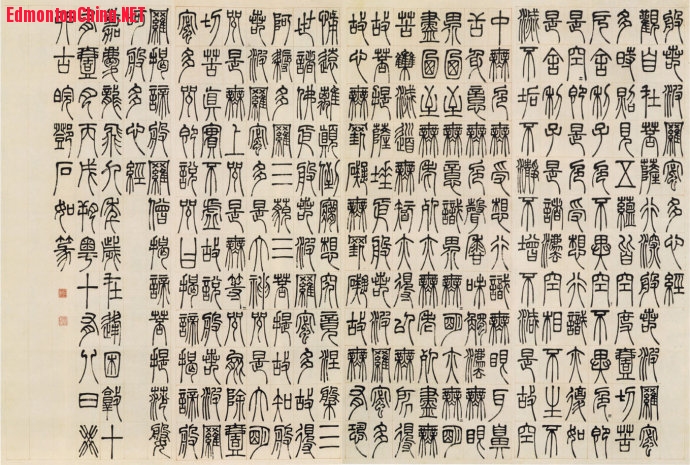 般若波羅蜜多心經
觀自在菩薩行深般若波羅蜜
多時照見五蘊皆空度壹切苦
厄舍利子色不異空不異色即
是空即是色受想行識亦復如
是舍利子是諸法空相不生不
滅不垢不淨不增不減是故空
中無色無受想行識無眼耳鼻
舌身意無色聲香味觸法無眼
界乃至無意識界無明亦無明
盡乃至無老死亦無老死盡無
苦集滅道無智亦得以無所得
故菩提薩埵依般若波羅蜜多
故心無罣礙無罣礙故無有恐
怖遠離顛倒夢想究竟涅槃三
世諸佛依般若波羅蜜多故得
阿耨多羅三藐三菩提故知般
若波羅蜜多是大神咒是大明
咒是無上咒是無等咒能除壹
切苦真實不虛故說般若波羅
蜜多咒即說咒曰揭諦揭諦般
羅揭諦般羅僧揭諦菩提薩
般多心經
嘉慶龍飛九年歲在逢困敦十
有壹月丙戌朔粵十有八日癸
古皖鄧石如篆
EdmontonChina.NET